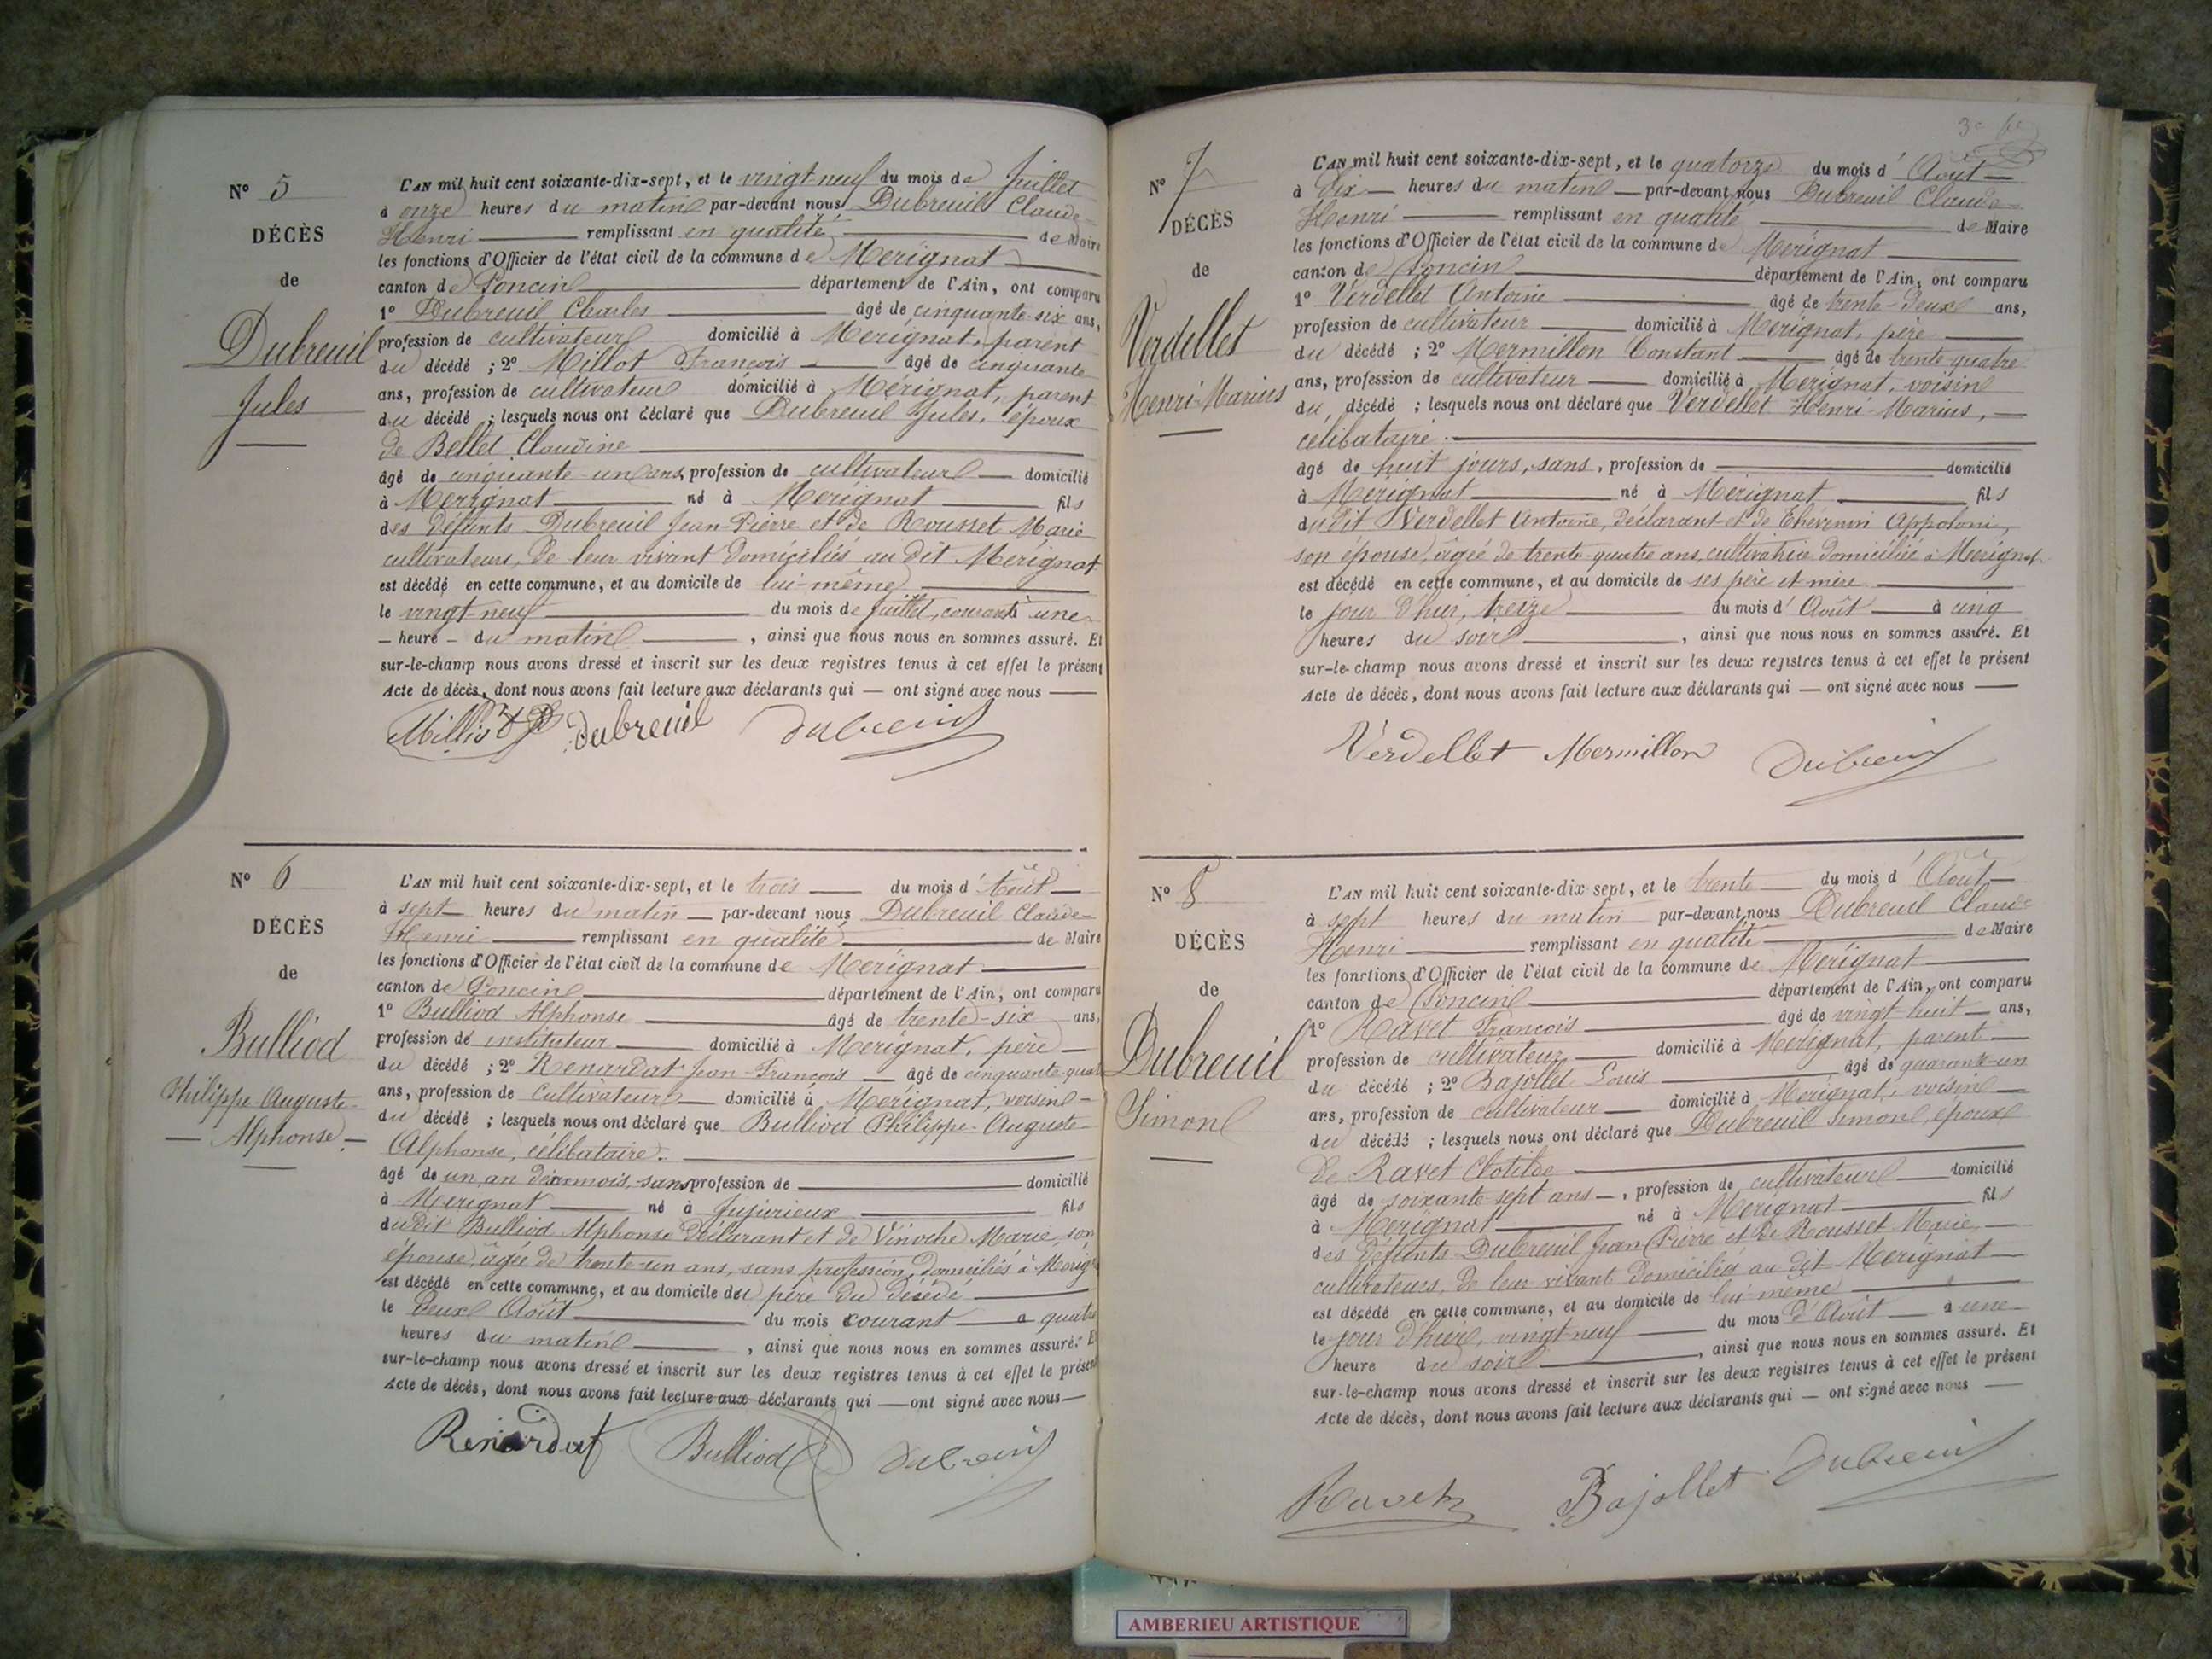 N° 5
DÉCÈS
de
Dubreuil
Jules
L'AN mil huit cent soixante-dix-sept, et le vingt-neuf du mois de Juillet
à onze heures du matin par-devant nous Dubreuil Claude-
Henri remplissant en qualité de Maire
les fonctions d'Officier de l'état civil de la commune de Merignat
canton de Poncin département de l'Ain, ont comparu
1° Dubreuil Charles âgé de cinquante-six ans,
profession de cultivateur domicilié à Merignat, parent
du décédé ; 2° Millot François âgé de cinquante
ans, profession de cultivateur domicilié à Mérignat, parent
du décédé ; lesquels nous ont déclaré que Dubreuil Jules, époux
de Bellet Claudine
âgé de cinquante-un ans, profession de cultivateur domicilié
à Merignat né à Merignat fils
des défunts Dubreuil Jean-Pierre et de Rousset Marie
cultivateurs, de leur vivant domiciliés au dit Merignat
est décédé en cette commune, et au domicile de lui-même
le vingt-neuf du mois de Juillet, courant à une
heure du matin, ainsi que nous nous en sommes assuré. Et
sur-le-champ nous avons dressé et inscrit sur les deux registres tenus à cet effet le présent
Acte de décès, dont nous avons fait lecture aux déclarants qui — ont signé avec nous —
Dubreuil Dubreuil
N° 6
DÉCÈS
de
Bulliod
Philippe-Auguste-
— Alphonse —
L'AN mil huit cent soixante-dix-sept, et le trois du mois d'Août
à sept heures du matin par-devant nous Dubreuil Claude-
Henri remplissant en qualité de Maire
les fonctions d'Officier de l'état civil de la commune de Merignat
canton de Poncin département de l'Ain, ont comparu
1° Bulliod Alphonse âgé de trente-six ans,
profession de instituteur domicilié à Merignat, père
du décédé ; 2° Renardat Jean-François âgé de cinquante quat
ans, profession de Cultivateur domicilié à Merignat, voisin
du décédé ; lesquels nous ont déclaré que Bulliod Philippe-Auguste-
Alphonse, célibataire.
âgé de un an mois, sans profession de domicilié
à Merignat né à Jujurieux fils
dudit Bulliod Alphonse déclarant et de Marie, son
épouse, âgée de trente-un ans, sans profession, domiciliés à Merign
est décédé en cette commune, et au domicile du père du décédé
le deux Août du mois courant à quatre
heures du matin, ainsi que nous nous en sommes assuré. Et
sur-le-champ nous avons dressé et inscrit sur les deux registres tenus à cet effet le présent
Acte de décès, dont nous avons fait lecture aux déclarants qui — ont signé avec nous —
Renardat Bulliod Dubreuil
N° 7
DÉCÈS
de
Verdellet
Henri-Marius
L'AN mil huit cent soixante-dix-sept, et le quatorze du mois d'Août
à dix heures du matin par-devant nous Dubreuil Claude
Henri remplissant en qualité de Maire
les fonctions d'Officier de l'état civil de la commune de Merignat
canton de Poncin département de l'Ain, ont comparu
1° Verdellet Antoine âgé de trente-deux ans,
profession de cultivateur domicilié à Merignat, père
du décédé ; 2° Mermillon Constant âgé de trente-quatre
ans, profession de cultivateur domicilié à Merignat, voisin
du décédé ; lesquels nous ont déclaré que Verdellet Henri-Marius,
célibataire.
âgé de huit jours, sans, profession de domicilié
à Merignat né à Merignat fils
dudit Verdellet Antoine, déclarant et de Thévenin Appolonie,
son épouse, âgée de trente-quatre ans, cultivatrice domiciliée à Merignat
est décédé en cette commune, et au domicile de ses père et mère
le jour d'hier, treize du mois d'Août à cinq
heures du soir, ainsi que nous nous en sommes assuré. Et
sur-le-champ nous avons dressé et inscrit sur les deux registres tenus à cet effet le présent
Acte de décès, dont nous avons fait lecture aux déclarants qui — ont signé avec nous —
Verdellet Mermillon Dubreuil
N° 8
DÉCÈS
de
Dubreuil
Simon
L'AN mil huit cent soixante-dix-sept, et le trente du mois d'Août
à sept heures du matin par-devant nous Dubreuil Claude
Henri remplissant en qualité de Maire
les fonctions d'Officier de l'état civil de la commune de Merignat
canton de Poncin département de l'Ain, ont comparu
1° Ravet François âgé de vingt-huit ans,
profession de cultivateur domicilié à Merignat, parent
du décédé ; 2° Bajollet Louis âgé de quarante-un
ans, profession de cultivateur domicilié à Merignat, voisin
du décédé ; lesquels nous ont déclaré que Dubreuil Simon, époux
de Ravet Clotilde
âgé de soixante-sept ans, profession de cultivateur domicilié
à Merignat né à Merignat fils
des défunts Dubreuil Jean Pierre et de Rousset Marie
cultivateurs, de leur vivant domiciliés au dit Merignat
est décédé en cette commune, et au domicile de lui-même
le jour d'hier, vingt-neuf du mois d'Août à une
heure du soir, ainsi que nous nous en sommes assuré. Et
sur-le-champ nous avons dressé et inscrit sur les deux registres tenus à cet effet le présent
Acte de décès, dont nous avons fait lecture aux déclarants qui — ont signé avec nous —
Ravet Bajollet Dubreuil
AMBERIEU ARTISTIQUE